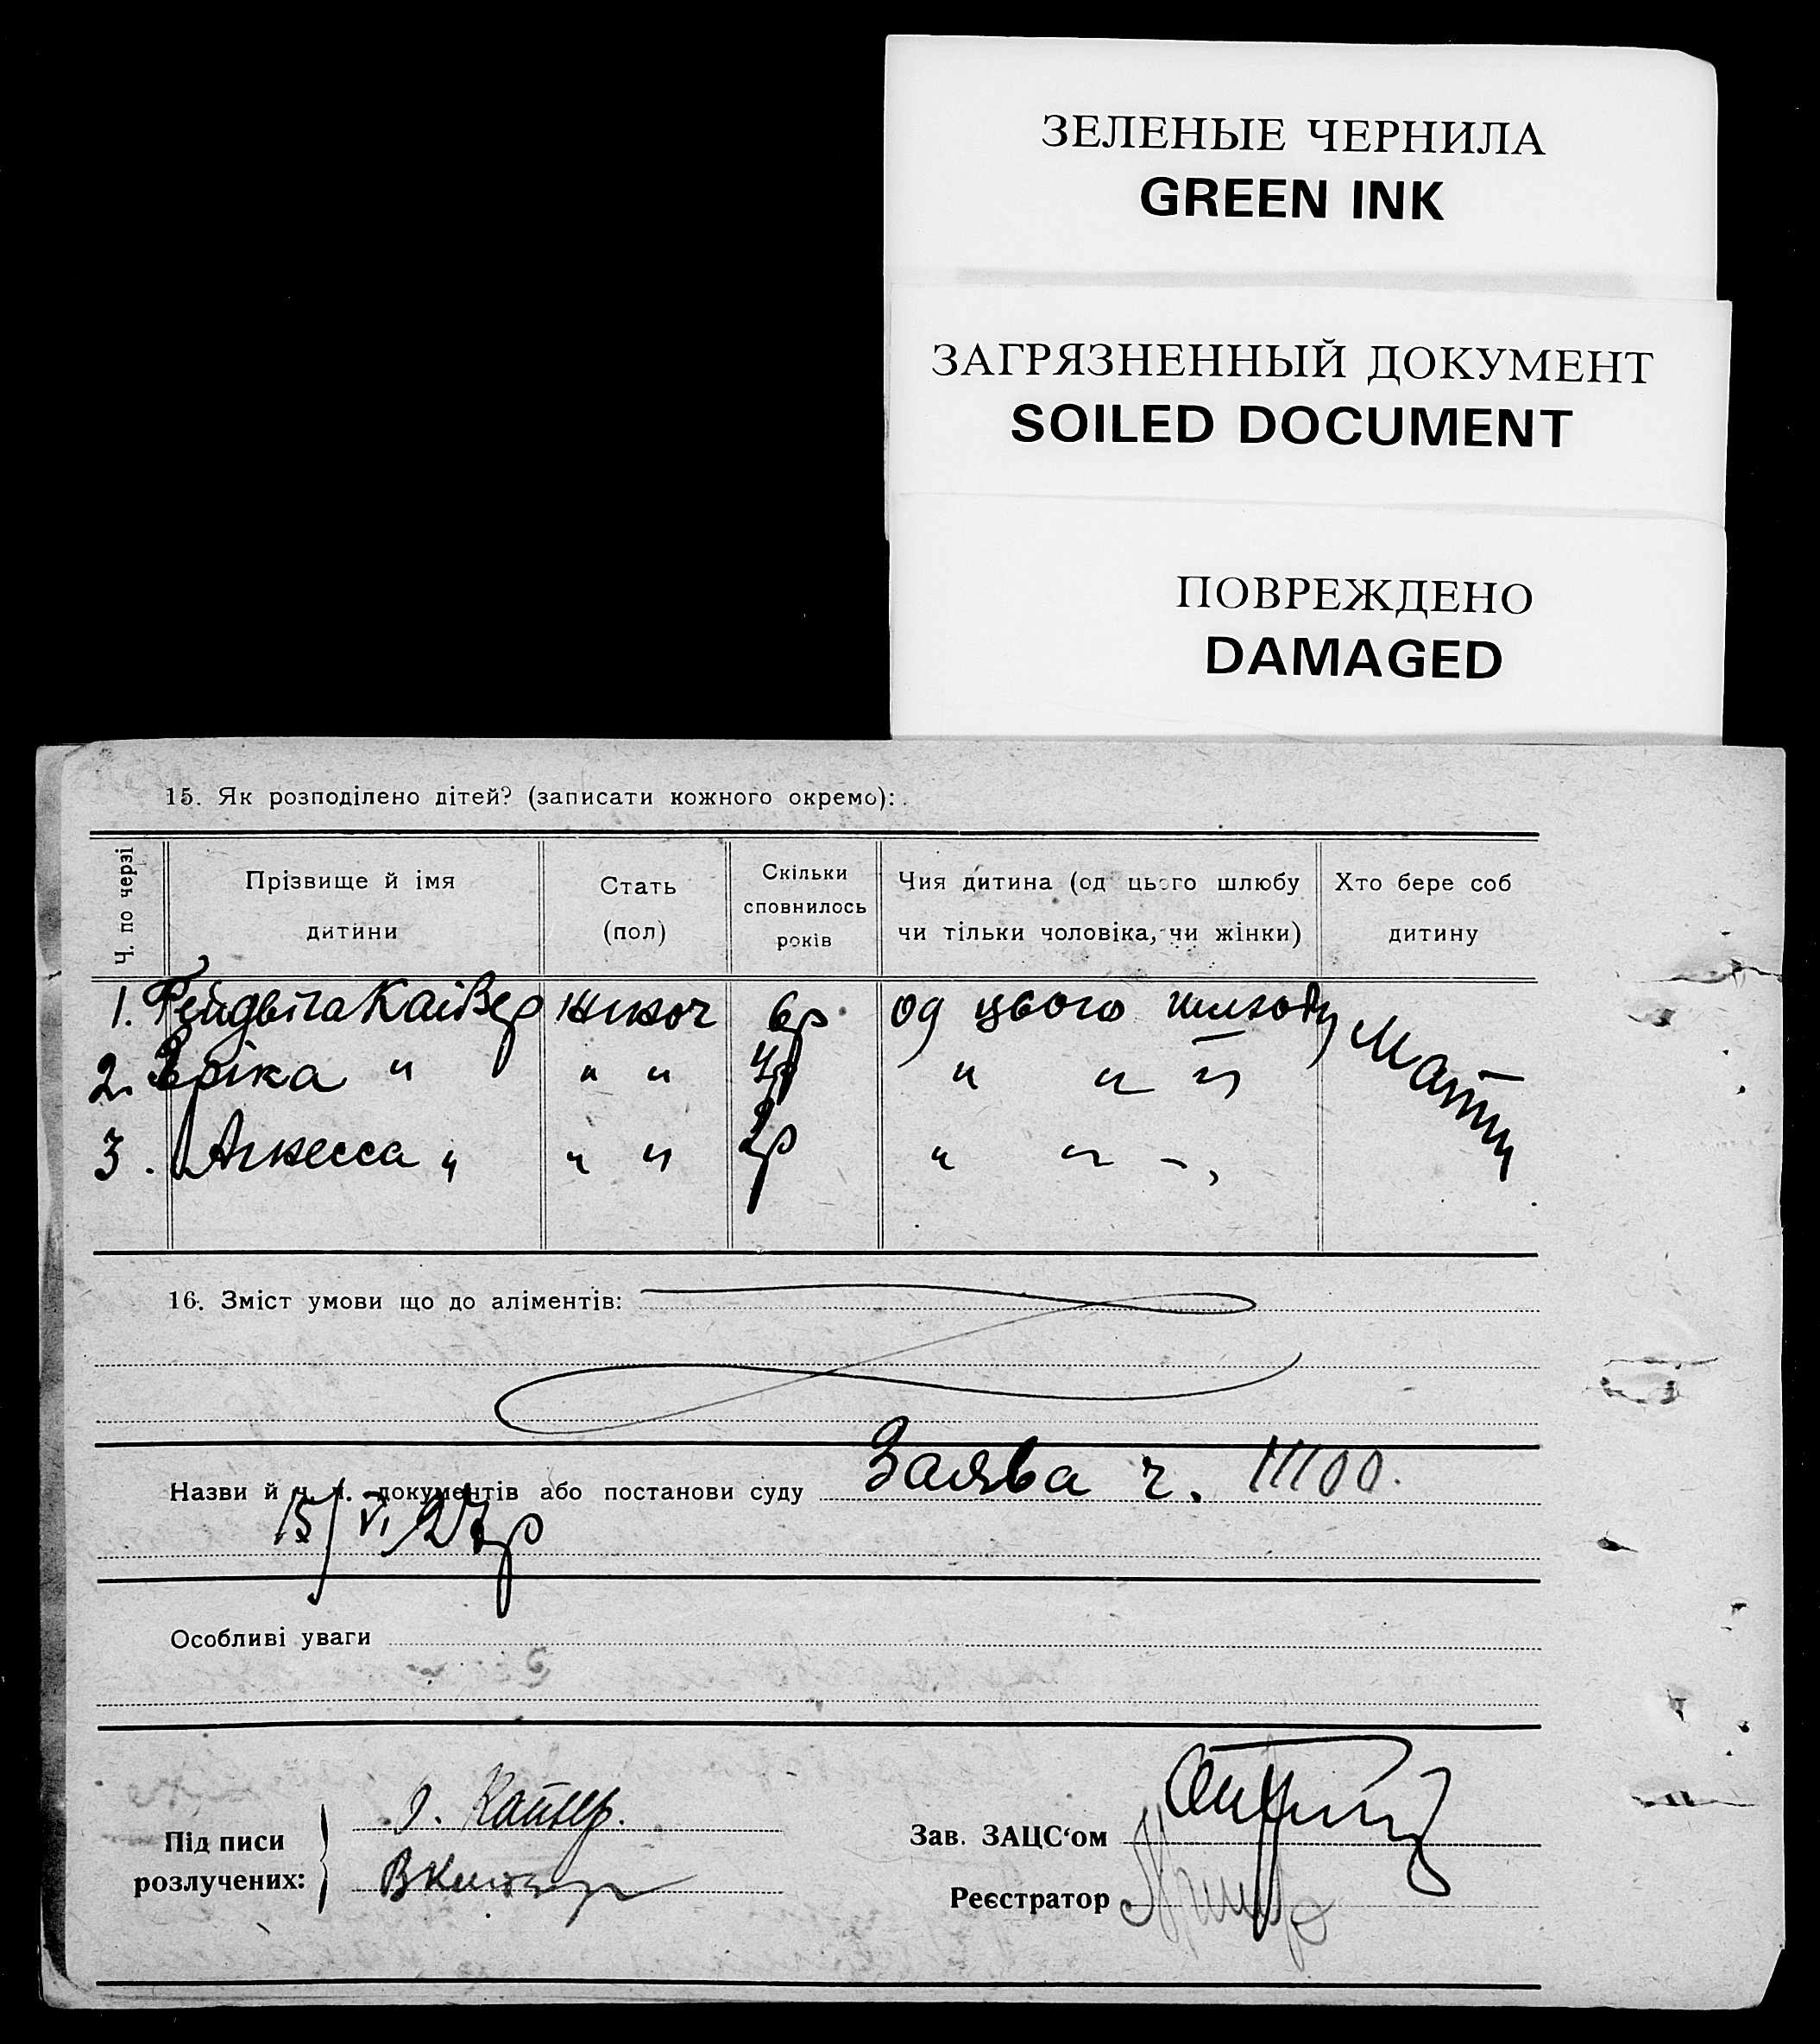 ЗЕЛЕНЫЕ ЧЕРНИЛА
GREEN INK
ЗАГРЯЗНЕННЫЙ ДОКУМЕНТ
SOILED DOCUMENT
ПОВРЕЖДЕНО
DAMAGED
15. Як розподілено дітей? (записати кожного окремо):
Ч. по черзі
Прізвище й імя
дитини
Стать
(пол)
Скільки
сповнилось
років
Чия дитина (од цього шлюбу
чи тільки чоловіка, чи жінки)
Хто бере соб
дитину
1. жіноч 6р од цього шлюбу Мати
2. Еріка " " " 4р " " "
3. Агнесса " " " 2р " " "
16. Зміст умови що до аліментів:
Назви й ч. ч. документів або постанови суду Заява ч. 11100.
15/VI 27р
Особливі уваги
Підписи
розлучених:
Зав. ЗАЦС'ом
Реєстратор